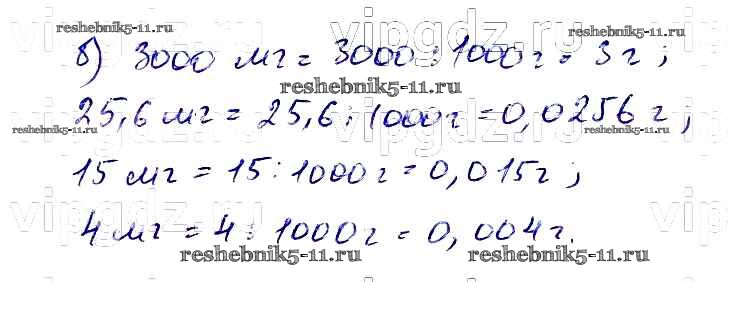 reshebnik5-11.ru reshebnik5-11.ru
vipgdz.ru vipgdz.ru
б) 3000 мг = 3000 : 1000 г = 3 г ;
reshebnik5-11.ru
25,6 мг = 25,6 : 1000 г = 0,0256 г ;
reshebnik5-11.ru reshebnik5-11.ru
vipgdz.ru vipgdz.ru
15 мг = 15 : 1000 г = 0,015 г ;
vipgdz.ru vipgdz.ru vi
4 мг = 4 : 1000 г = 0,004 г.
reshebnik5-11.ru reshebnik5-11.ru